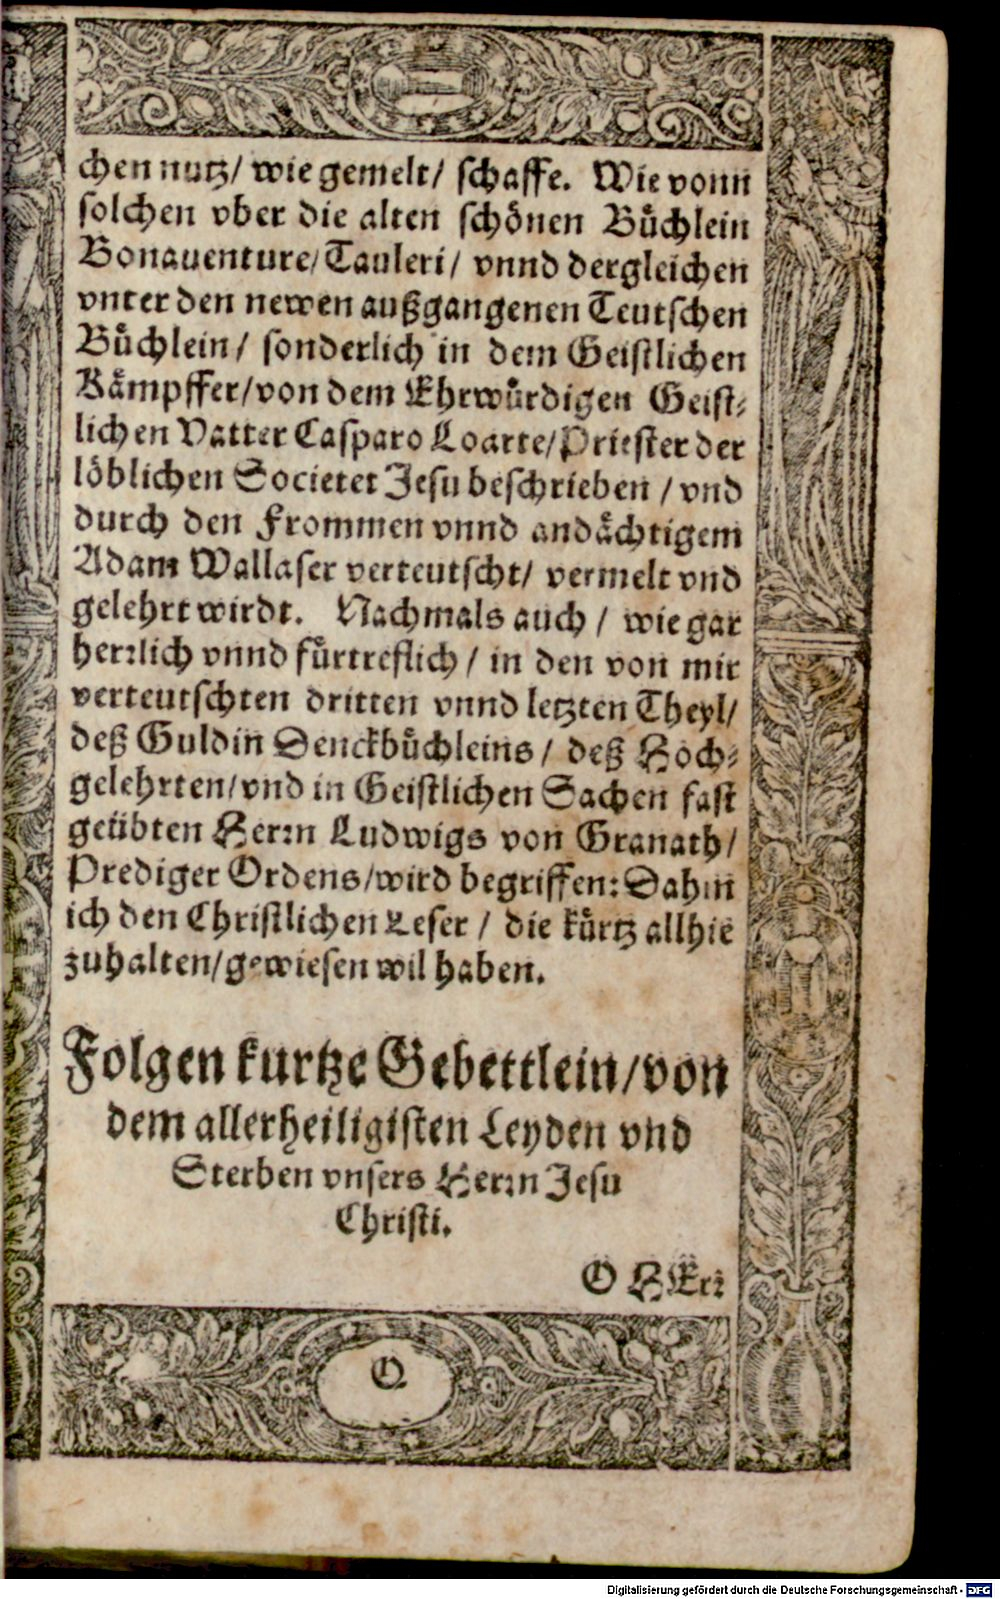 chen nutz/ wie gemelt/ schaffe. Wie vonn
solchen vber die alten schönen Bůchlein
Bonauenture/ Tauleri/ vnnd dergleichen
vnter den newen außgangenen Teutschen
Bůchlein/ sonderlich in dem Geistlichen
Kämpffer/ von dem Ehrwůrdigen Geist-
lichen Vatter Casparo Loarte/ Priester der
löblichen Societet Jesu beschrieben / vnd
durch den Frommen vnnd andächtigem
Adam Wallaser verteutscht/ vermelt vnd
gelehrt wirdt. Nachmals auch / wie gar
herrlich vnnd fůrtreflich / in den von mir
verteutschten dritten vnnd letzten Theyl/
deß Guldin Denckbůchleins / deß Hoch-
gelehrten/ vnd in Geistlichen Sachen fast
geübten Herrn Ludwigs von Granath/
Prediger Ordens/ wird begriffen: Dahin
ich den Christlichen Leser / die kůrtz allhie
zuhalten/ gewiesen wil haben.
Folgen kurtze Gebettlein/ von
dem allerheiligisten Leyden vnd
Sterben vnsers Herrn Jesu
Christi.
O HErr
Q
Digitalisierung gefördert durch die Deutsche Forschungsgemeinschaft - DFG